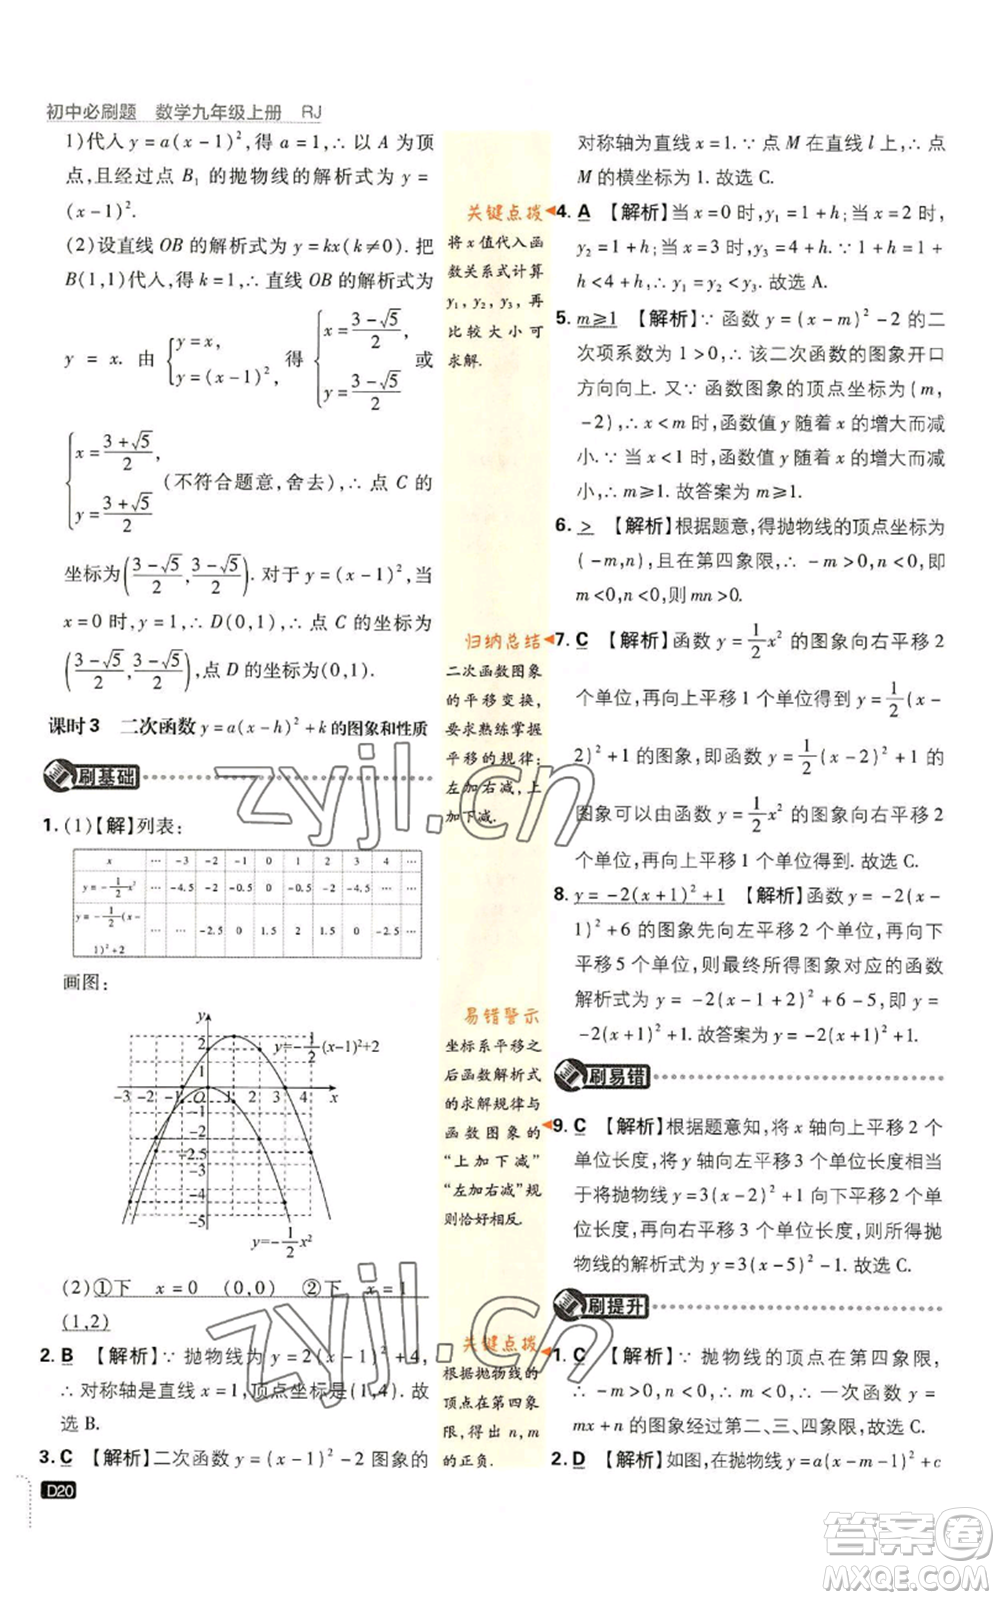 初中必刷题 数学九年级上册 RJ
1)代入 y=a(x-1)²,得 a=1,∴ 以 A 为顶
点,且经过点 B₁ 的抛物线的解析式为 y=
(x-1)².
(2)设直线 OB 的解析式为 y=kx(k≠0). 把
B(1,1)代入,得 k=1,∴ 直线 OB 的解析式为
y=x. 由 {y=x, y=(x-1)², 得 {x=(3-√5)/2, y=(3-√5)/2 或
{x=(3+√5)/2, y=(3+√5)/2 (不符合题意,舍去),∴ 点 C 的
坐标为((3-√5)/2,(3-√5)/2). 对于 y=(x-1)²,当
x=0 时,y=1,∴ D(0,1),∴ 点 C 的坐标为
((3-√5)/2,(3-√5)/2),点 D 的坐标为(0,1).
课时3 二次函数 y=a(x-h)²+k 的图象和性质
刷基础
1. (1)【解】列表:
x … -3 -2 -1 0 1 2 3 4 …
y=-1/2x² … -4.5 -2 -0.5 0 -0.5 -2 -4.5 … …
y=-1/2(x-1)²+2 … … -2.5 0 1.5 2 1.5 0 -2.5 …
画图:
y
y=-1/2(x-1)²+2
-3 -2 -1 O 1 2 3 4 x
-2
-3
-4
-5
y=-1/2x²
(2)①下 x=0 (0,0) ②下 x=1
(1,2)
2. B 【解析】∵ 抛物线为 y=2(x-1)²+4,
∴ 对称轴是直线 x=1,顶点坐标是(1,4). 故
选 B.
3. C 【解析】二次函数 y=(x-1)²-2 图象的
D20
关键点拨
将 x 值代入函
数关系式计算
y₁, y₂, y₃, 再
比较大小可
求解.
归纳总结
二次函数图象
的平移变换,
要求熟练掌握
平移的规律:
左加右减,上
加下减.
易错警示
坐标系平移之
后函数解析式
的求解规律与
函数图象的
“上加下减”
“左加右减”规
则恰好相反.
关键点拨
根据抛物线的
顶点在第四象
限,得出 n,m
的正负.
对称轴为直线 x=1. ∵ 点 M 在直线 l 上,∴ 点
M 的横坐标为 1. 故选 C.
4. A 【解析】当 x=0 时,y₁=1+h;当 x=2 时,
y₂=1+h;当 x=3 时,y₃=4+h. ∵ 1+h=1+
h<4+h,∴ y₁=y₂<y₃. 故选 A.
5. m≥1 【解析】∵ 函数 y=(x-m)²-2 的二
次项系数为 1>0,∴ 该二次函数的图象开口
方向向上. 又∵ 函数图象的顶点坐标为(m,
-2),∴ x<m 时,函数值 y 随着 x 的增大而减
小. ∵ 当 x<1 时,函数值 y 随着 x 的增大而减
小,∴ m≥1. 故答案为 m≥1.
6. > 【解析】根据题意,得抛物线的顶点坐标为
(-m,n),且在第四象限,∴ -m>0,n<0,即
m<0,n<0,则 mn>0.
7. C 【解析】函数 y=1/2x² 的图象向右平移 2
个单位,再向上平移 1 个单位得到 y=1/2(x-
2)²+1 的图象,即函数 y=1/2(x-2)²+1 的
图象可以由函数 y=1/2x² 的图象向右平移 2
个单位,再向上平移 1 个单位得到. 故选 C.
8. y=-2(x+1)²+1 【解析】函数 y=-2(x-
1)²+6 的图象先向左平移 2 个单位,再向下
平移 5 个单位,则最终所得图象对应的函数
解析式为 y=-2(x-1+2)²+6-5,即 y=
-2(x+1)²+1. 故答案为 y=-2(x+1)²+1.
刷易错
9. C 【解析】根据题意知,将 x 轴向上平移 2 个
单位长度,将 y 轴向左平移 3 个单位长度相当
于将抛物线 y=3(x-2)²+1 向下平移 2 个单
位长度,再向右平移 3 个单位长度,则所得抛
物线的解析式为 y=3(x-5)²-1. 故选 C.
刷提升
1. C 【解析】∵ 抛物线的顶点在第四象限,
∴ -m>0,n<0,∴ m<0,∴ 一次函数 y=
mx+n 的图象经过第二、三、四象限,故选 C.
2. D 【解析】如图,在抛物线 y=a(x-m-1)²+c
zyjl.cn
zyjl.cn
答案卷
MXQE.COM